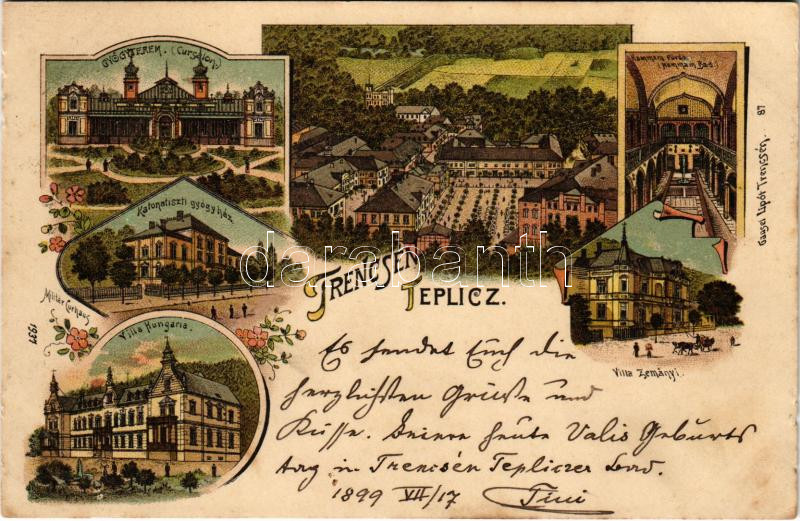 GYÓGYTEREM. (Cursalon)
Hammam Fürdő.
(Hammam Bad.)
87
Gansel Lipót Trencsén.
Katonatiszti gyógyház.
Militär Curhaus
1537
darabanth
TRENCSÉN
TEPLICZ.
Villa Hungaria.
Villa Zemányi.
Es sendet Euch die
herzlichsten Grüsse und
Küsse. Feiern heute Valis Geburts
tag in Trencsén Tepliczer Bad.
1899 VII/17 Tini